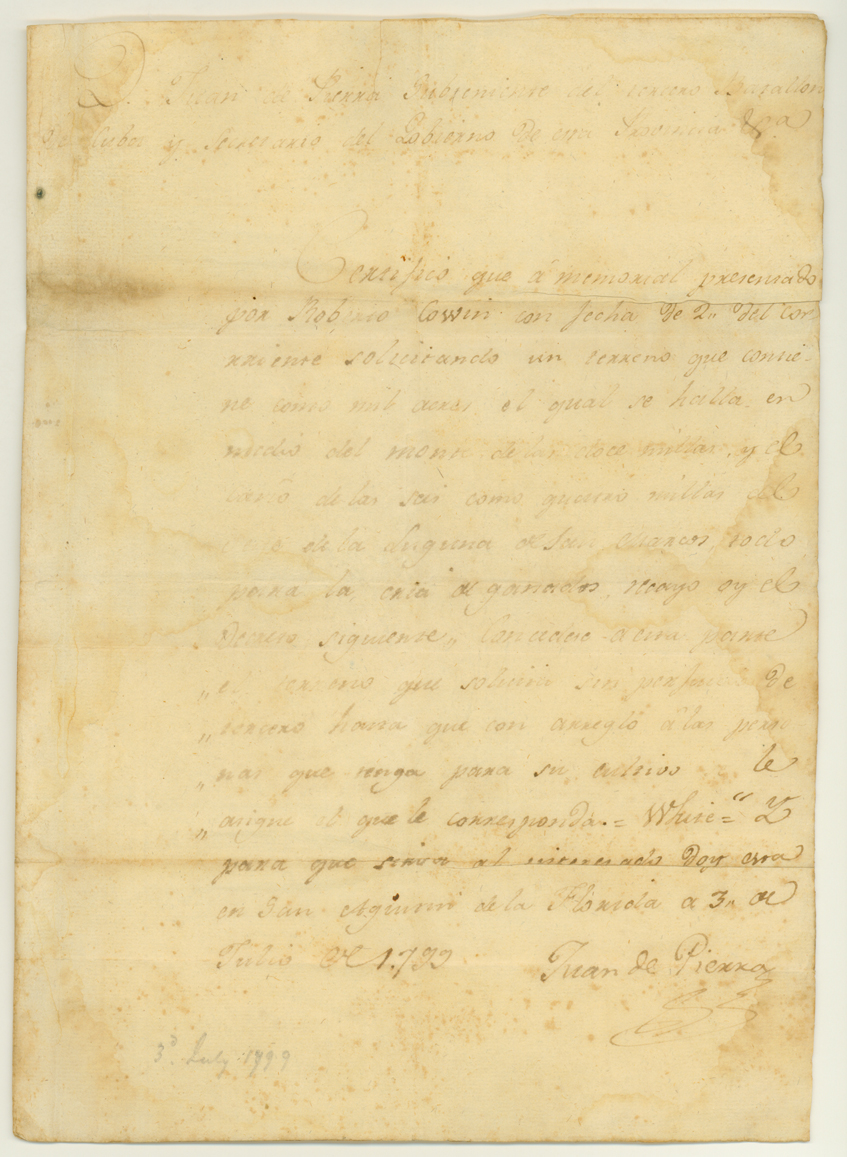 Dn. Juan de Pierra Subteniente del tercero Batallon
de Cuba y Secretario del Gobierno de esta Provincia &ca
Certifico que á memorial presentado
por Roberto Cowin con fecha de 2,, del cor-
rriente solicitando un terreno que contie-
ne como mil acres, el qual se halla en
medio del monte de las doce millas, y el
de las seis como quatro millas del
de la Laguna de San Marcos, todo
para la cria de ganados, recayo oy el
Decreto siguiente,, Concedese a esta parte
,, el terreno que solicita sin perjuicio de
,, tercero hasta que con arreglo á las perso-
,, nas que tenga para su cultivo le
,, asigne el que le corresponda.= White=" Y
para que sirva al interesado doy esta
en San Agustin de la Florida a 3,, de
Julio de 1799
Juan de Pierra
3d July 1799